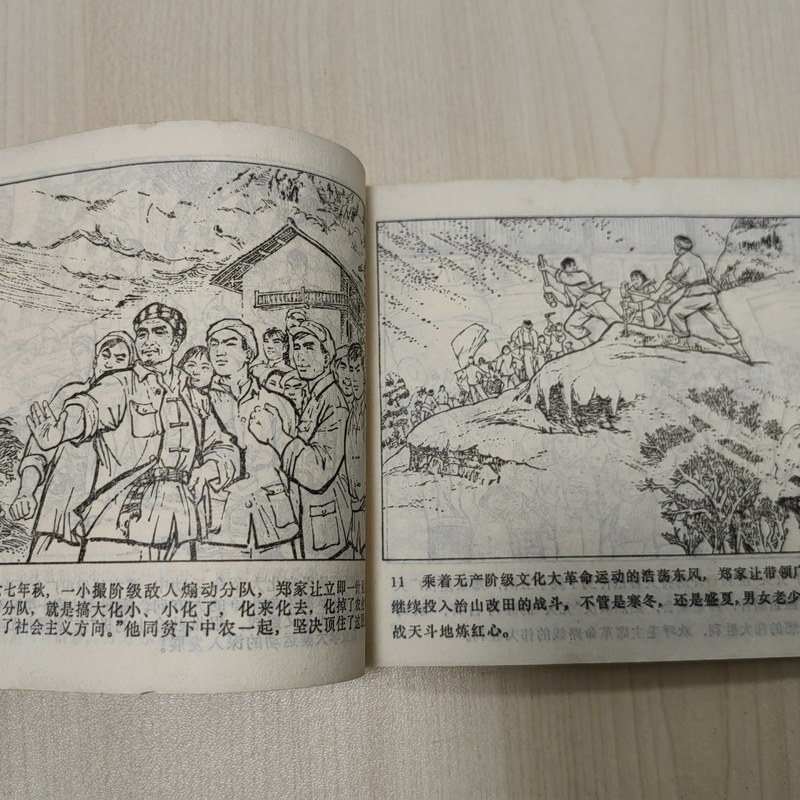 七年秋，一小撮阶级敌人煽动分队，郑家让立即一针
分队，就是搞大化小、小化了，化来化去，化掉了
了社会主义方向。”他同贫下中农一起，坚决顶住了
11 乘着无产阶级文化大革命运动的浩荡东风，郑家让带领
继续投入治山改田的战斗，不管是寒冬，还是盛夏，男女老少
战天斗地炼红心。